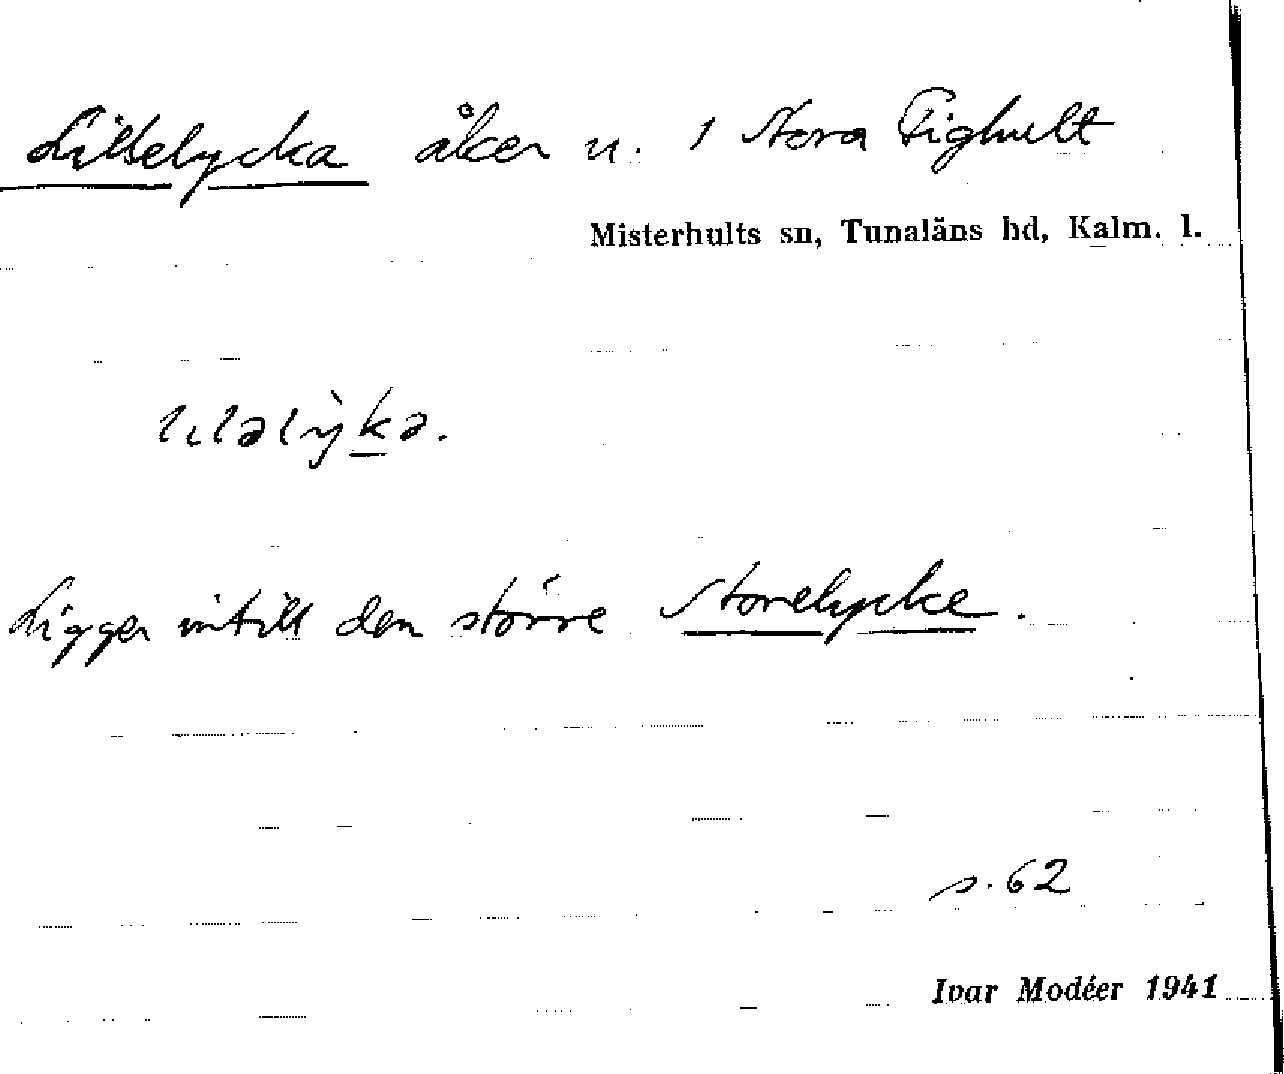 Lillelycka åker n. 1 Stora Fighult
Misterhults sn, Tunaläns hd, Kalm. l.
Ligger intill den större Storelycke.
s. 62
Ivar Modéer 1941